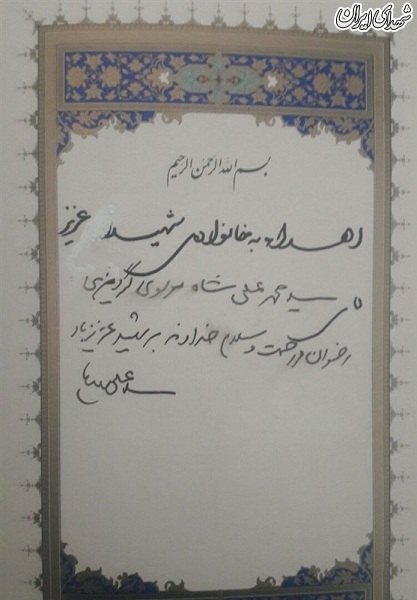 شهدای ایران
بسم الله الرحمن الرحیم
اهداء به خانواده‌ی شهید عزیز
سید محمد علی شاه موسوی گردیزی
رضوان و رحمت و سلام خداوند بر شهید عزیز باد
سید علی